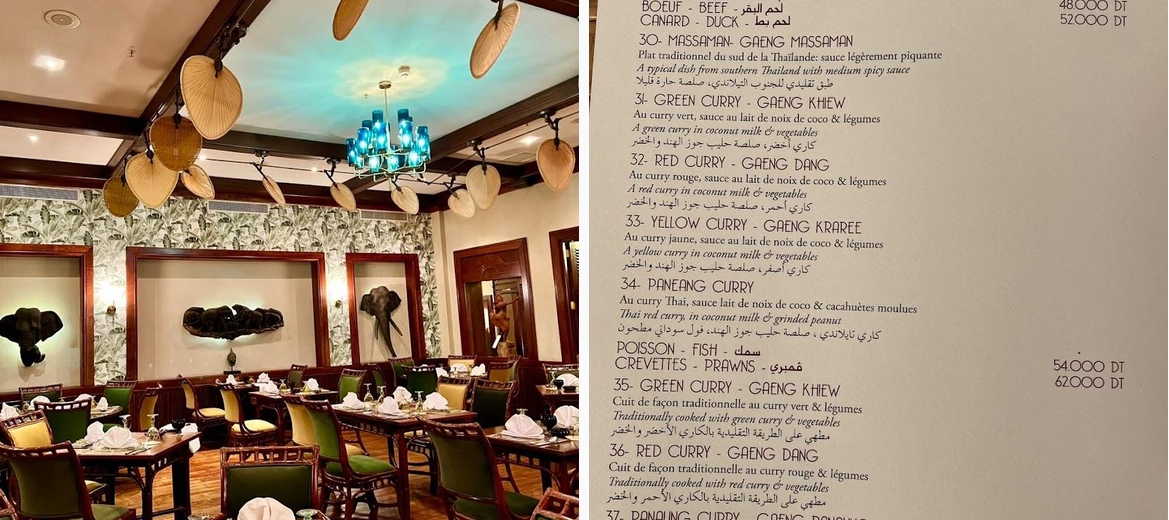 BOEUF - BEEF - لحم البقر 48.000 DT
CANARD - DUCK - لحم بط 52.000 DT
30- MASSAMAN- GAENG MASSAMAN
Plat traditionnel du sud de la Thaïlande: sauce légèrement piquante
A typical dish from southern Thailand with medium spicy sauce
طبق تقليدي للجنوب التيلاندي، صلصة حارة قليلا
31- GREEN CURRY - GAENG KHIEW
Au curry vert, sauce au lait de noix de coco & légumes
A green curry in coconut milk & vegetables
كاري أخضر، صلصة حليب جوز الهند والخضر
32- RED CURRY - GAENG DANG
Au curry rouge, sauce au lait de noix de coco & légumes
A red curry in coconut milk & vegetables
كاري أحمر، صلصة حليب جوز الهند والخضر
33- YELLOW CURRY - GAENG KRAREE
Au curry jaune, sauce au lait de noix de coco & légumes
A yellow curry in coconut milk & vegetables
كاري أصفر، صلصة حليب جوز الهند والخضر
34- PANEANG CURRY
Au curry Thai, sauce lait de noix de coco & cacahuètes moulues
Thai red curry, in coconut milk & grinded peanut
كاري تايلاندي، صلصة حليب جوز الهند، فول سوداني مطحون
POISSON - FISH - سمك 54.000 DT
CREVETTES - PRAWNS - قمبري 62.000 DT
35- GREEN CURRY - GAENG KHIEW
Cuit de façon traditionnelle au curry vert & légumes
Traditionally cooked with green curry & vegetables
مطهي على الطريقة التقليدية بالكاري الأخضر والخضر
36- RED CURRY - GAENG DANG
Cuit de façon traditionnelle au curry rouge & légumes
Traditionally cooked with red curry & vegetables
مطهي على الطريقة التقليدية بالكاري الأحمر والخضر
37- PANAUNG CURRY - GAENG